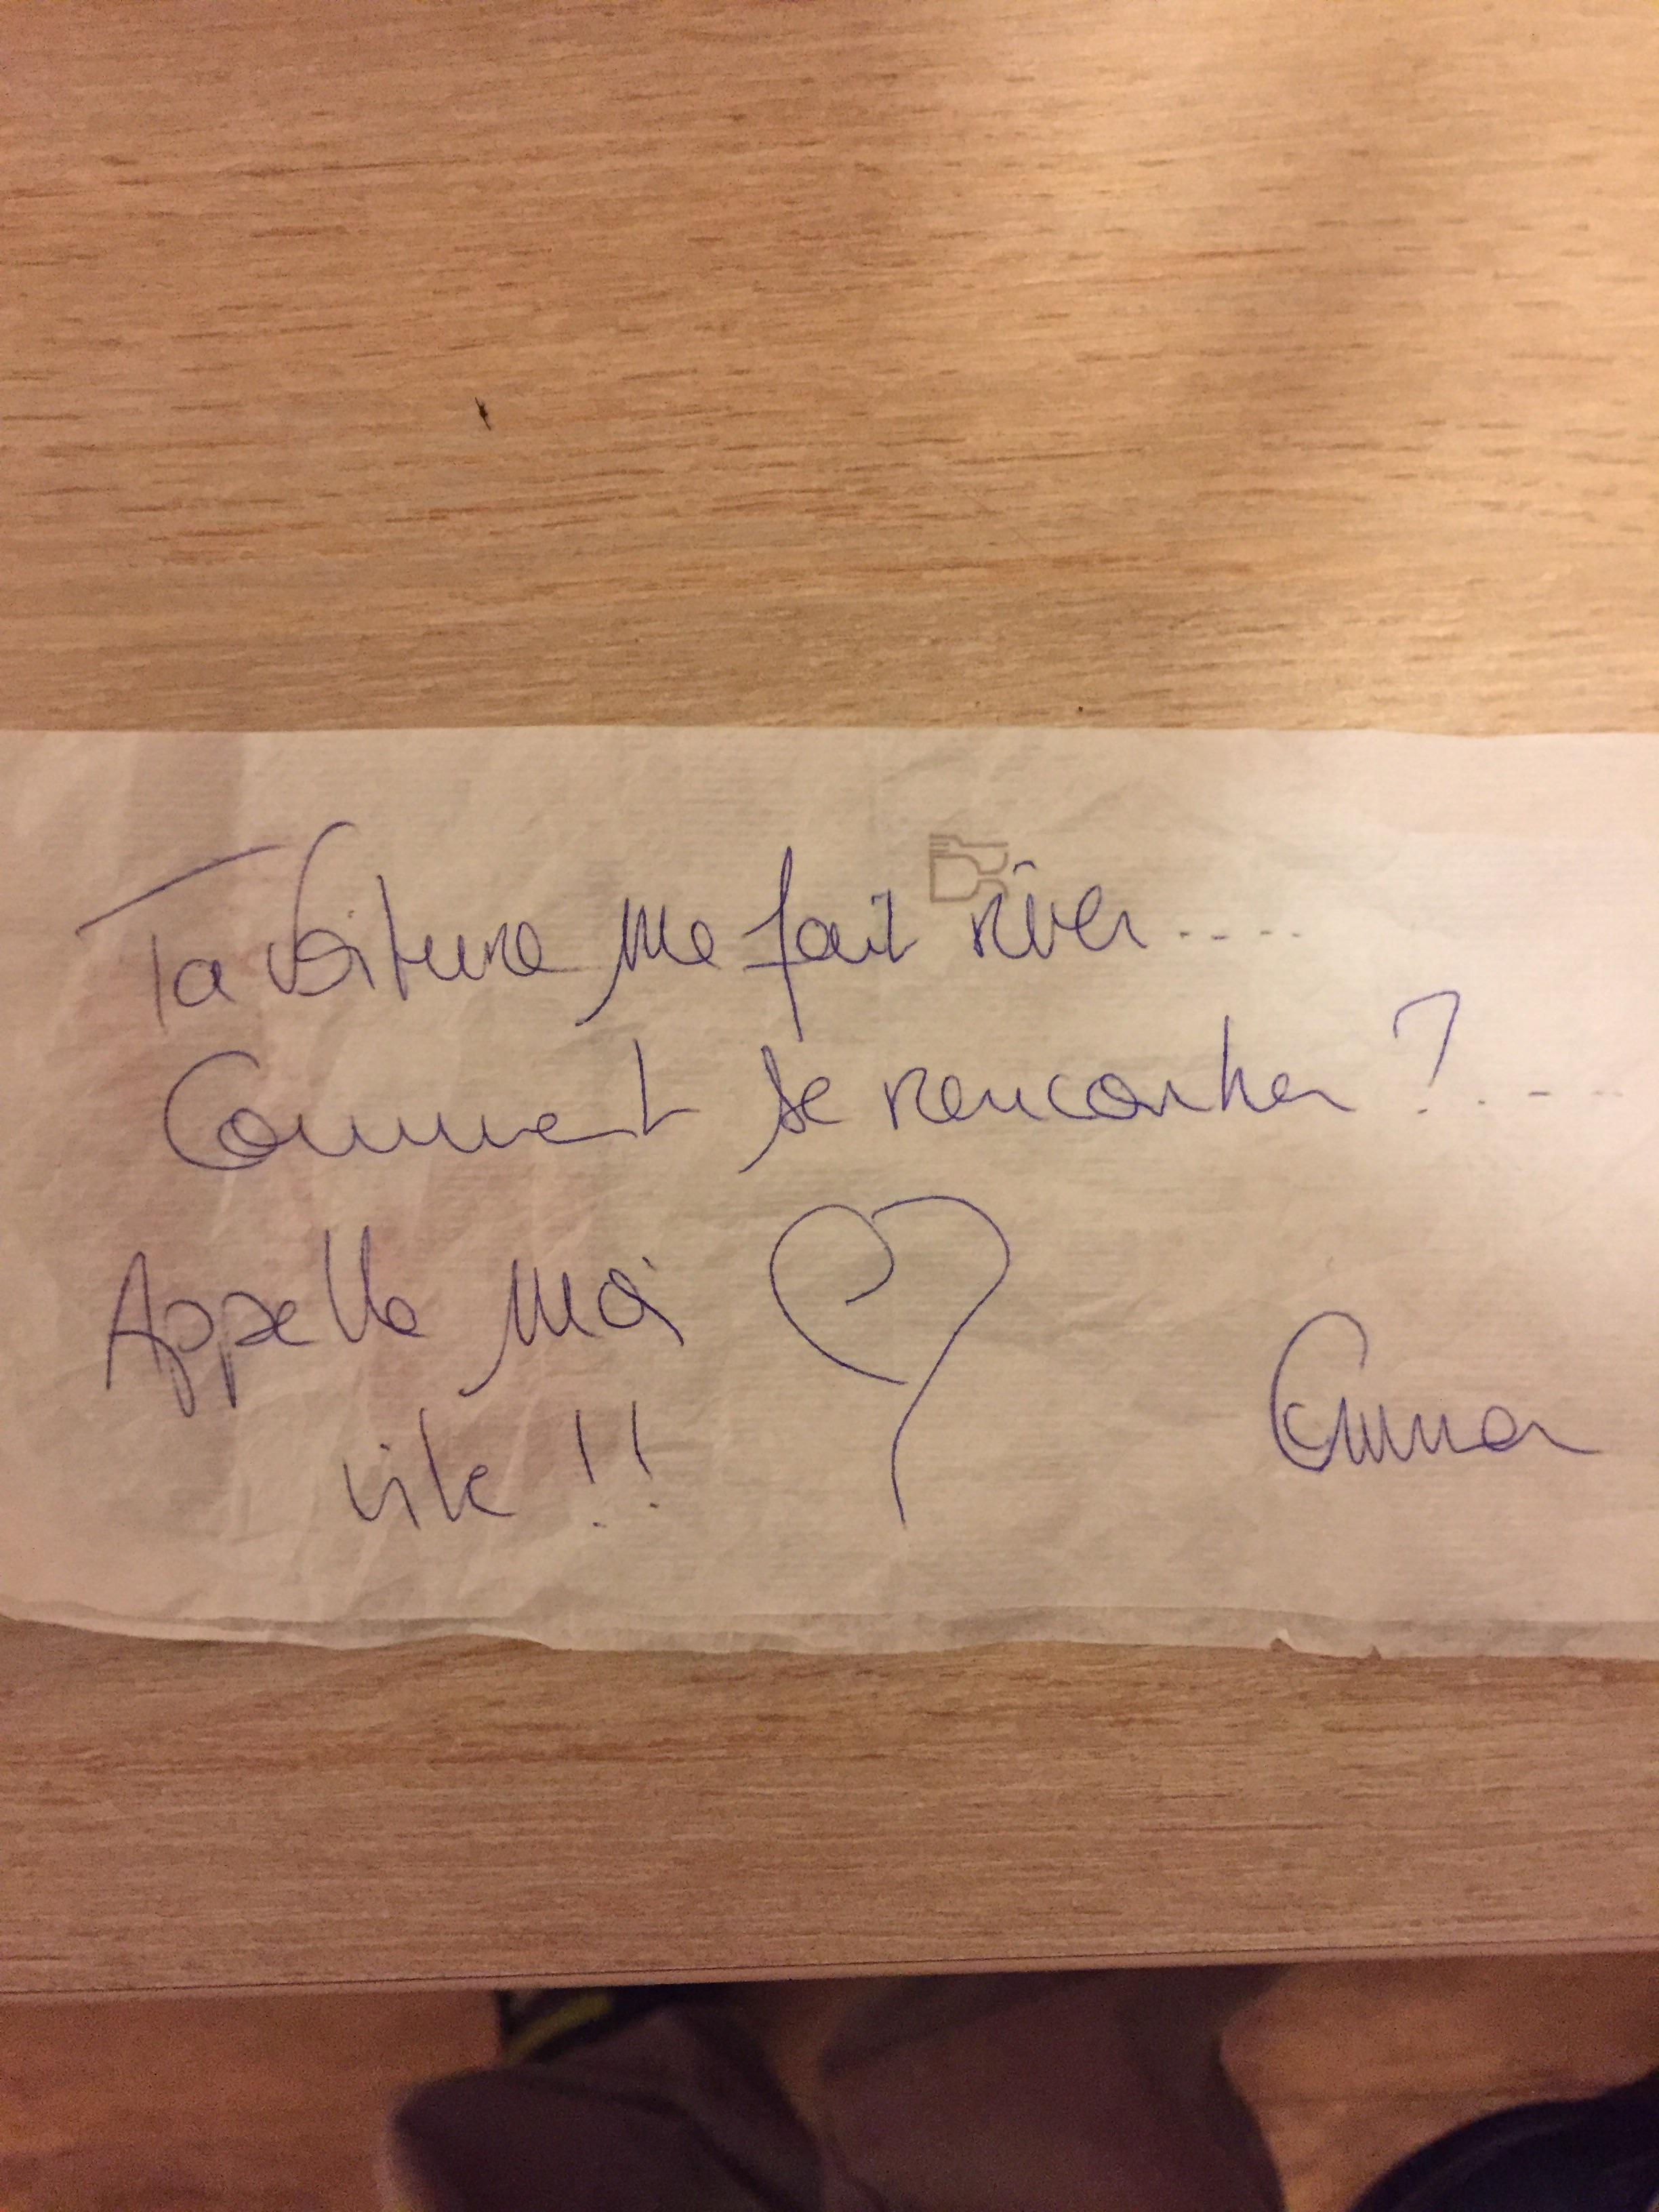 Ta voiture me fait rêver....
Comment se rencontrer ?....
Appelle moi
vite !!
Emma